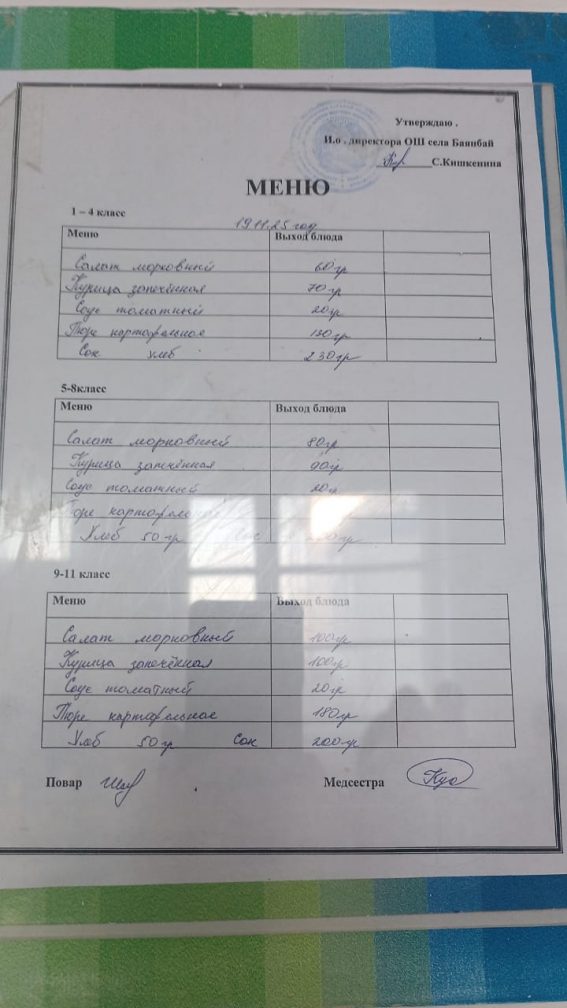 Утверждаю .
И.о . директора ОШ села Баянбай
С.Кишкенина
МЕНЮ
1 – 4 класс
19.11.25 год
Меню Выход блюда
Салат морковный 60гр
Курица запечённая 70гр
Соус томатный 20гр
Пюре картофельное 130гр
Сок хлеб 230гр
5-8класс
Меню Выход блюда
Салат морковный 80гр
Курица запечённая 90гр
Соус томатный 20гр
Пюре картофельное
Хлеб 50 гр Сок
9-11 класс
Меню Выход блюда
Салат морковный 100гр
Курица запечённая 100гр
Соус томатный 20гр
Пюре картофельное 180гр
Хлеб 50 гр Сок 200гр
Повар Медсестра